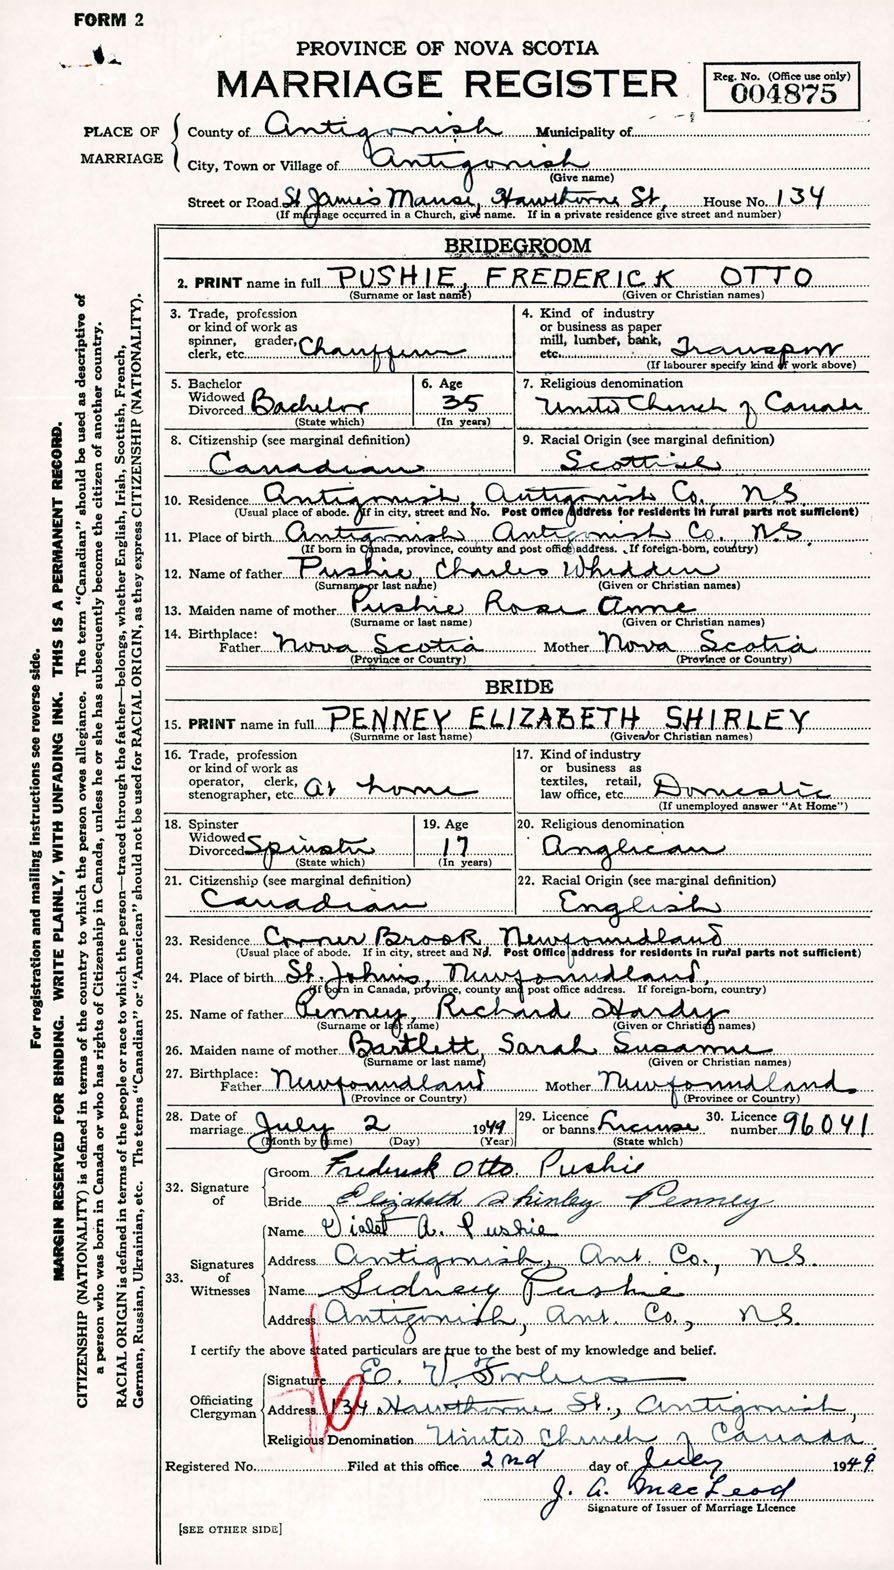 FORM 2
PROVINCE OF NOVA SCOTIA
MARRIAGE REGISTER
Reg. No. (Office use only)
004875
PLACE OF MARRIAGE
County of Antigonish Municipality of
City, Town or Village of Antigonish
(Give name)
Street or Road St James Manse, Hawthorne St, House No. 134
(If marriage occurred in a Church, give name. If in a private residence give street and number)
BRIDEGROOM
2. PRINT name in full PUSHIE, FREDERICK OTTO
(Surname or last name) (Given or Christian names)
3. Trade, profession or kind of work as spinner, grader, clerk, etc. Chauffeur
4. Kind of industry or business as paper mill, lumber, bank, etc. Transport
(If labourer specify kind of work above)
5. Bachelor Widowed Divorced Bachelor
(State which)
6. Age 35
(In years)
7. Religious denomination
United Church of Canada
8. Citizenship (see marginal definition)
Canadian
9. Racial Origin (see marginal definition)
Scottish
10. Residence Antigonish, Antigonish Co., N.S.
(Usual place of abode. If in city, street and No. Post Office address for residents in rural parts not sufficient)
11. Place of birth Antigonish Antigonish Co., N.S.
(If born in Canada, province, county and post office address. If foreign-born, country)
12. Name of father Pushie, Charles Whidden
(Surname or last name) (Given or Christian names)
13. Maiden name of mother Pushie Rose Anne
(Surname or last name) (Given or Christian names)
14. Birthplace: Father Nova Scotia Mother Nova Scotia
(Province or Country) (Province or Country)
BRIDE
15. PRINT name in full PENNEY ELIZABETH SHIRLEY
(Surname or last name) (Given or Christian names)
16. Trade, profession or kind of work as operator, clerk, stenographer, etc. At home
17. Kind of industry or business as textiles, retail, law office, etc. Domestic
(If unemployed answer "At Home")
18. Spinster Widowed Divorced Spinster
(State which)
19. Age 17
(In years)
20. Religious denomination
Anglican
21. Citizenship (see marginal definition)
Canadian
22. Racial Origin (see marginal definition)
English
23. Residence Corner Brook Newfoundland
(Usual place of abode. If in city, street and No. Post Office address for residents in rural parts not sufficient)
24. Place of birth St. Johns, Newfoundland,
(If born in Canada, province, county and post office address. If foreign-born, country)
25. Name of father Penney, Richard Hardy
(Surname or last name) (Given or Christian names)
26. Maiden name of mother Bartlett, Sarah Susanne
(Surname or last name) (Given or Christian names)
27. Birthplace: Father Newfoundland Mother Newfoundland
(Province or Country) (Province or Country)
28. Date of marriage July 2 1949
(Month by name) (Day) (Year)
29. Licence or banns License
(State which)
30. Licence number 96041
32. Signature of
Groom Frederick Otto Pushie
Bride Elizabeth Shirley Penney
33. Signatures of Witnesses
Name Violet A. Pushie
Address Antigonish, Ant Co., N.S.
Name Sidney Pushie
Address Antigonish, Ant. Co., N.S.
I certify the above stated particulars are true to the best of my knowledge and belief.
Officiating Clergyman
Signature E. V. Forbes
Address 134 Hawthorne St., Antigonish,
Religious Denomination United Church of Canada
Registered No. Filed at this office 2nd day of July 1949
J. A. MacLeod
Signature of Issuer of Marriage Licence
[SEE OTHER SIDE]
For registration and mailing instructions see reverse side.
MARGIN RESERVED FOR BINDING. WRITE PLAINLY, WITH UNFADING INK. THIS IS A PERMANENT RECORD.
CITIZENSHIP (NATIONALITY) is defined in terms of the country to which the person owes allegiance. The term "Canadian" should be used as descriptive of
a person who was born in Canada or who has rights of Citizenship in Canada, unless he or she has subsequently become the citizen of another country.
RACIAL ORIGIN is defined in terms of the people or race to which the person—traced through the father—belongs, whether English, Irish, Scottish, French,
German, Russian, Ukrainian, etc. The terms "Canadian" or "American" should not be used for RACIAL ORIGIN, as they express CITIZENSHIP (NATIONALITY).